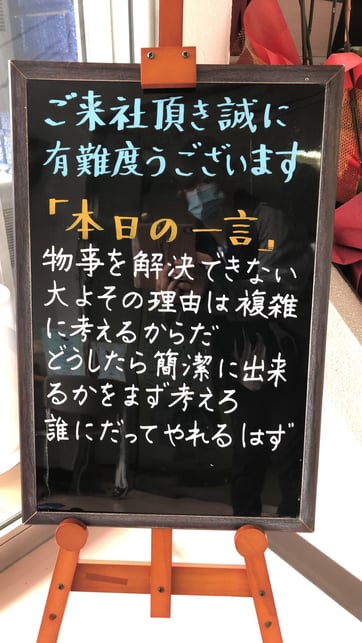 ご来社頂き誠に
有難度うございます
「本日の一言」
物事を解決できない
大よその理由は複雑
に考えるからだ
どうしたら簡潔に出来
るかをまず考えろ
誰にだってやれるはず